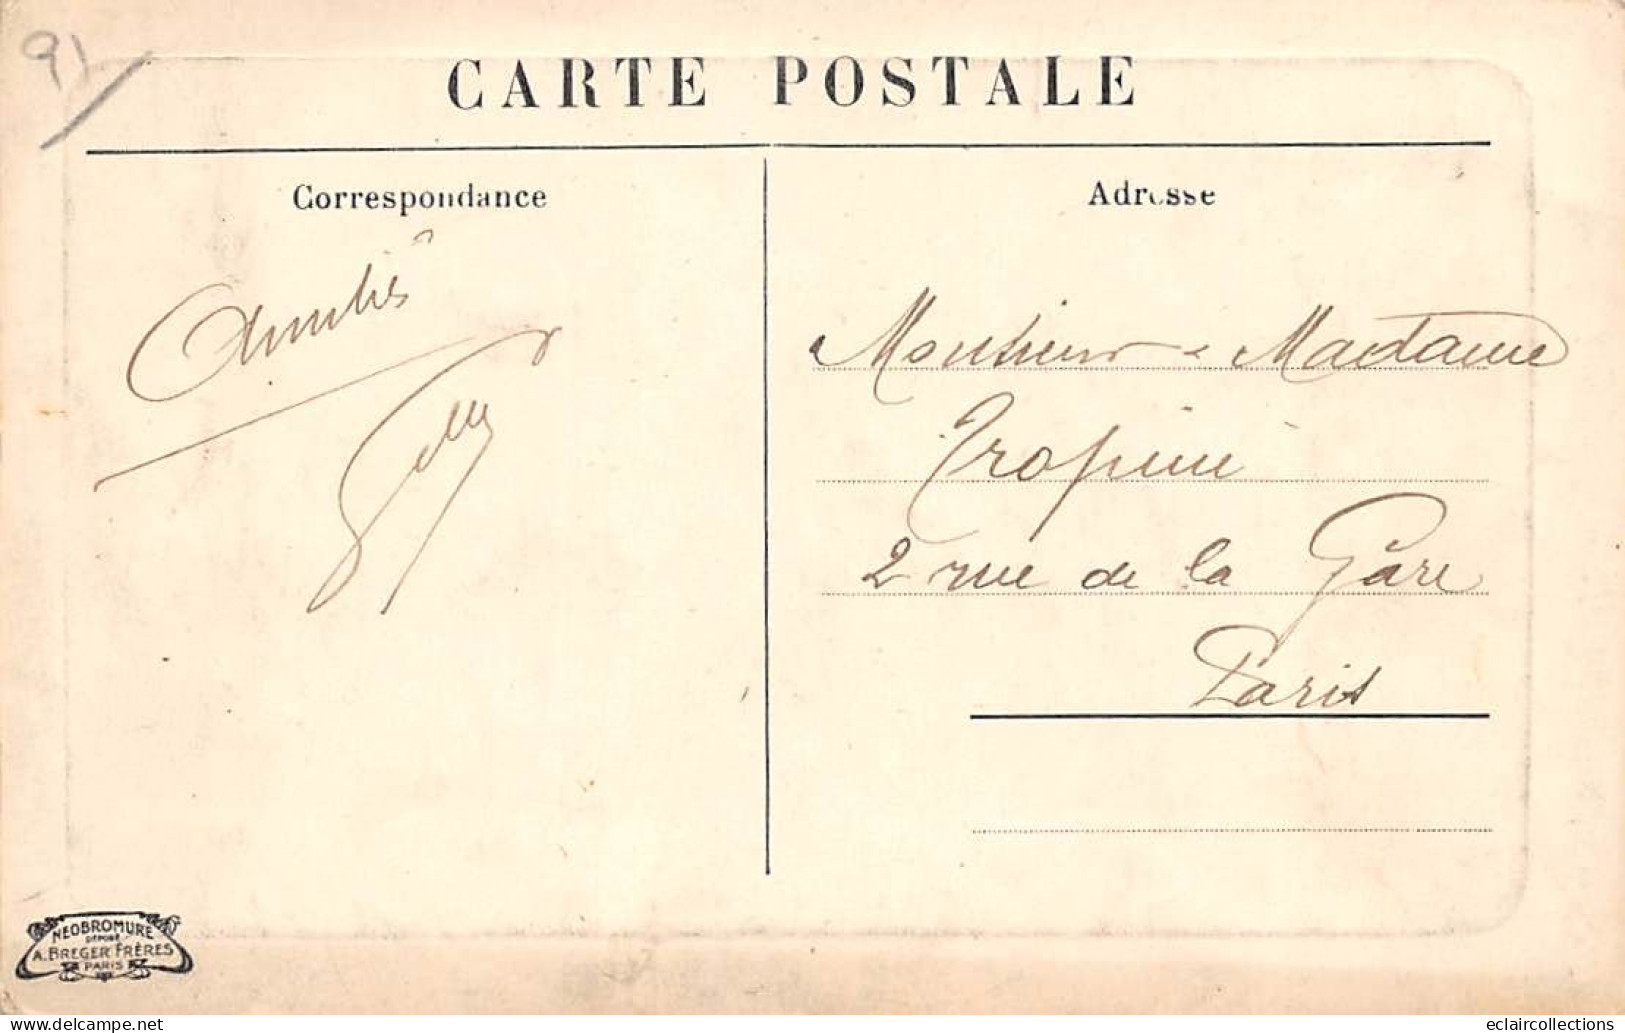 91
CARTE POSTALE
Correspondance
Adresse
Amitiés
Monsieur & Madame
Tropini
2 rue de la Gare
Paris
NEOBROMURE
DÉPOSÉ
A. BREGER FRÈRES
PARIS
eclaircollections